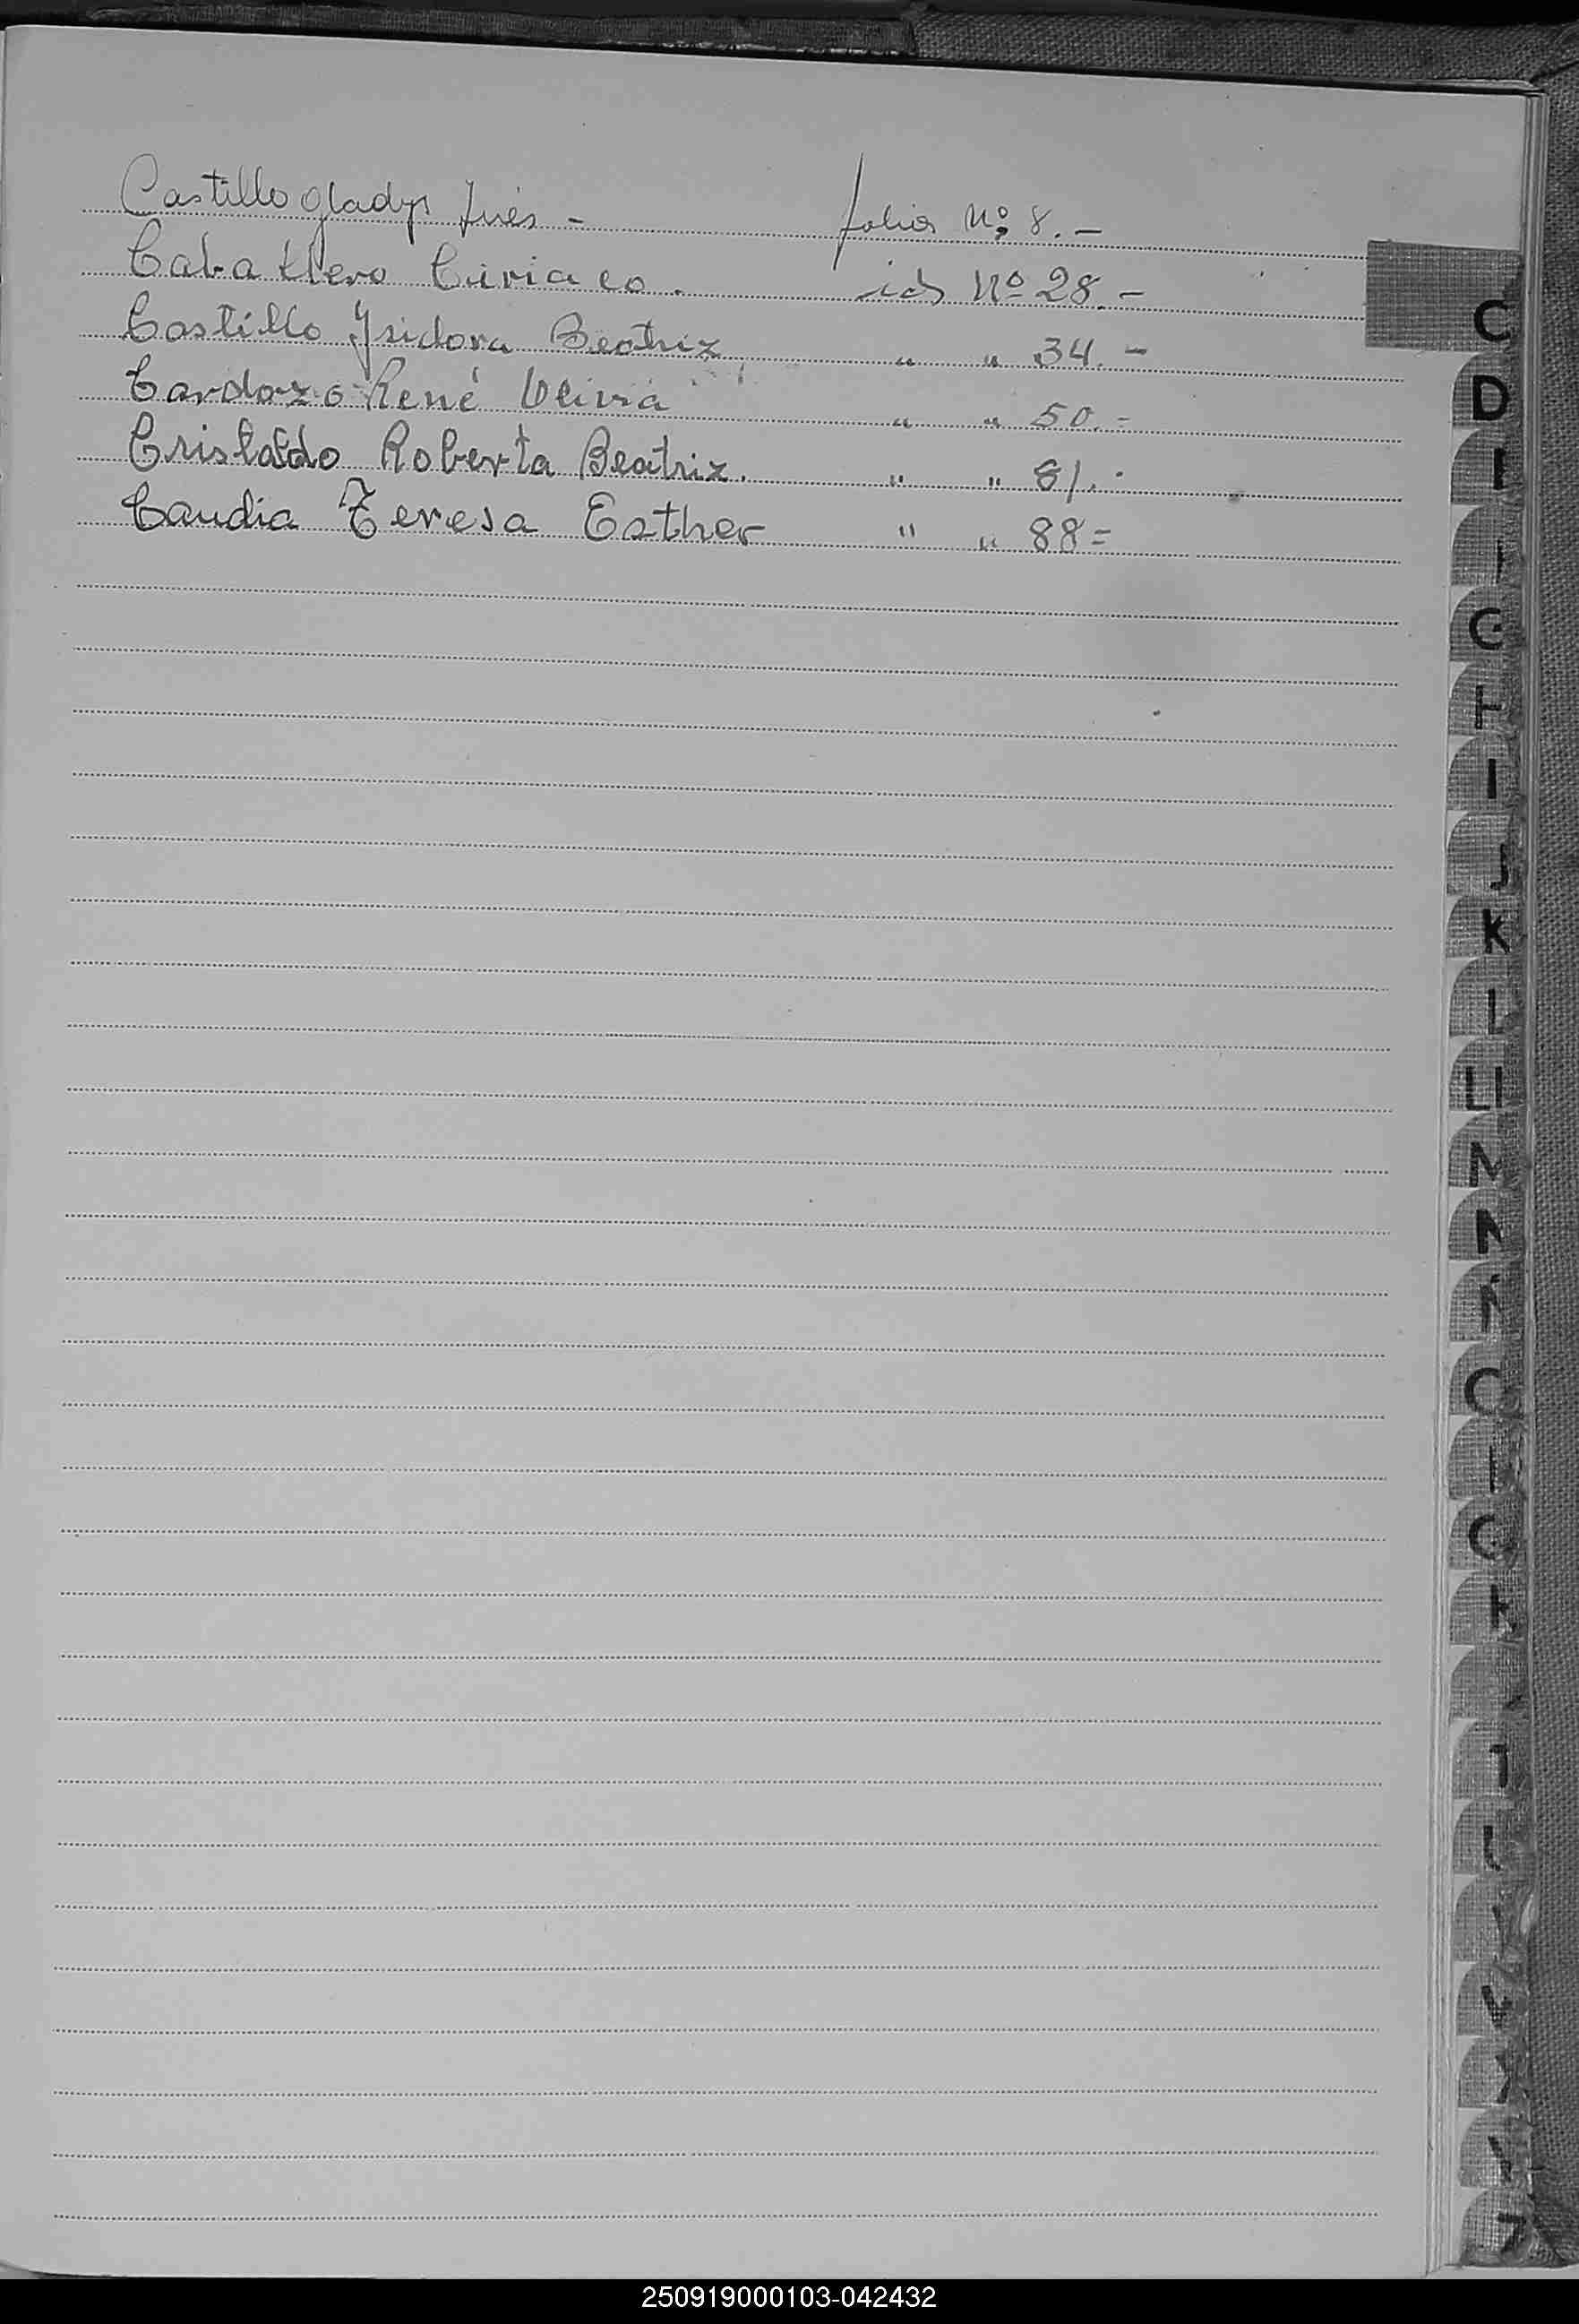 Castillo Gladys Inés - folio Nº 8. -
Caballero Ciriaco. id Nº 28. -
Castillo Ysidora Beatriz " " 34. -
Cardozo René Olivia " " 50. -
Cristaldo Roberta Beatriz. " " 81. -
Candia Teresa Esther " " 88 =
C
D
G
I
J
K
LL
N
250919000103-042432